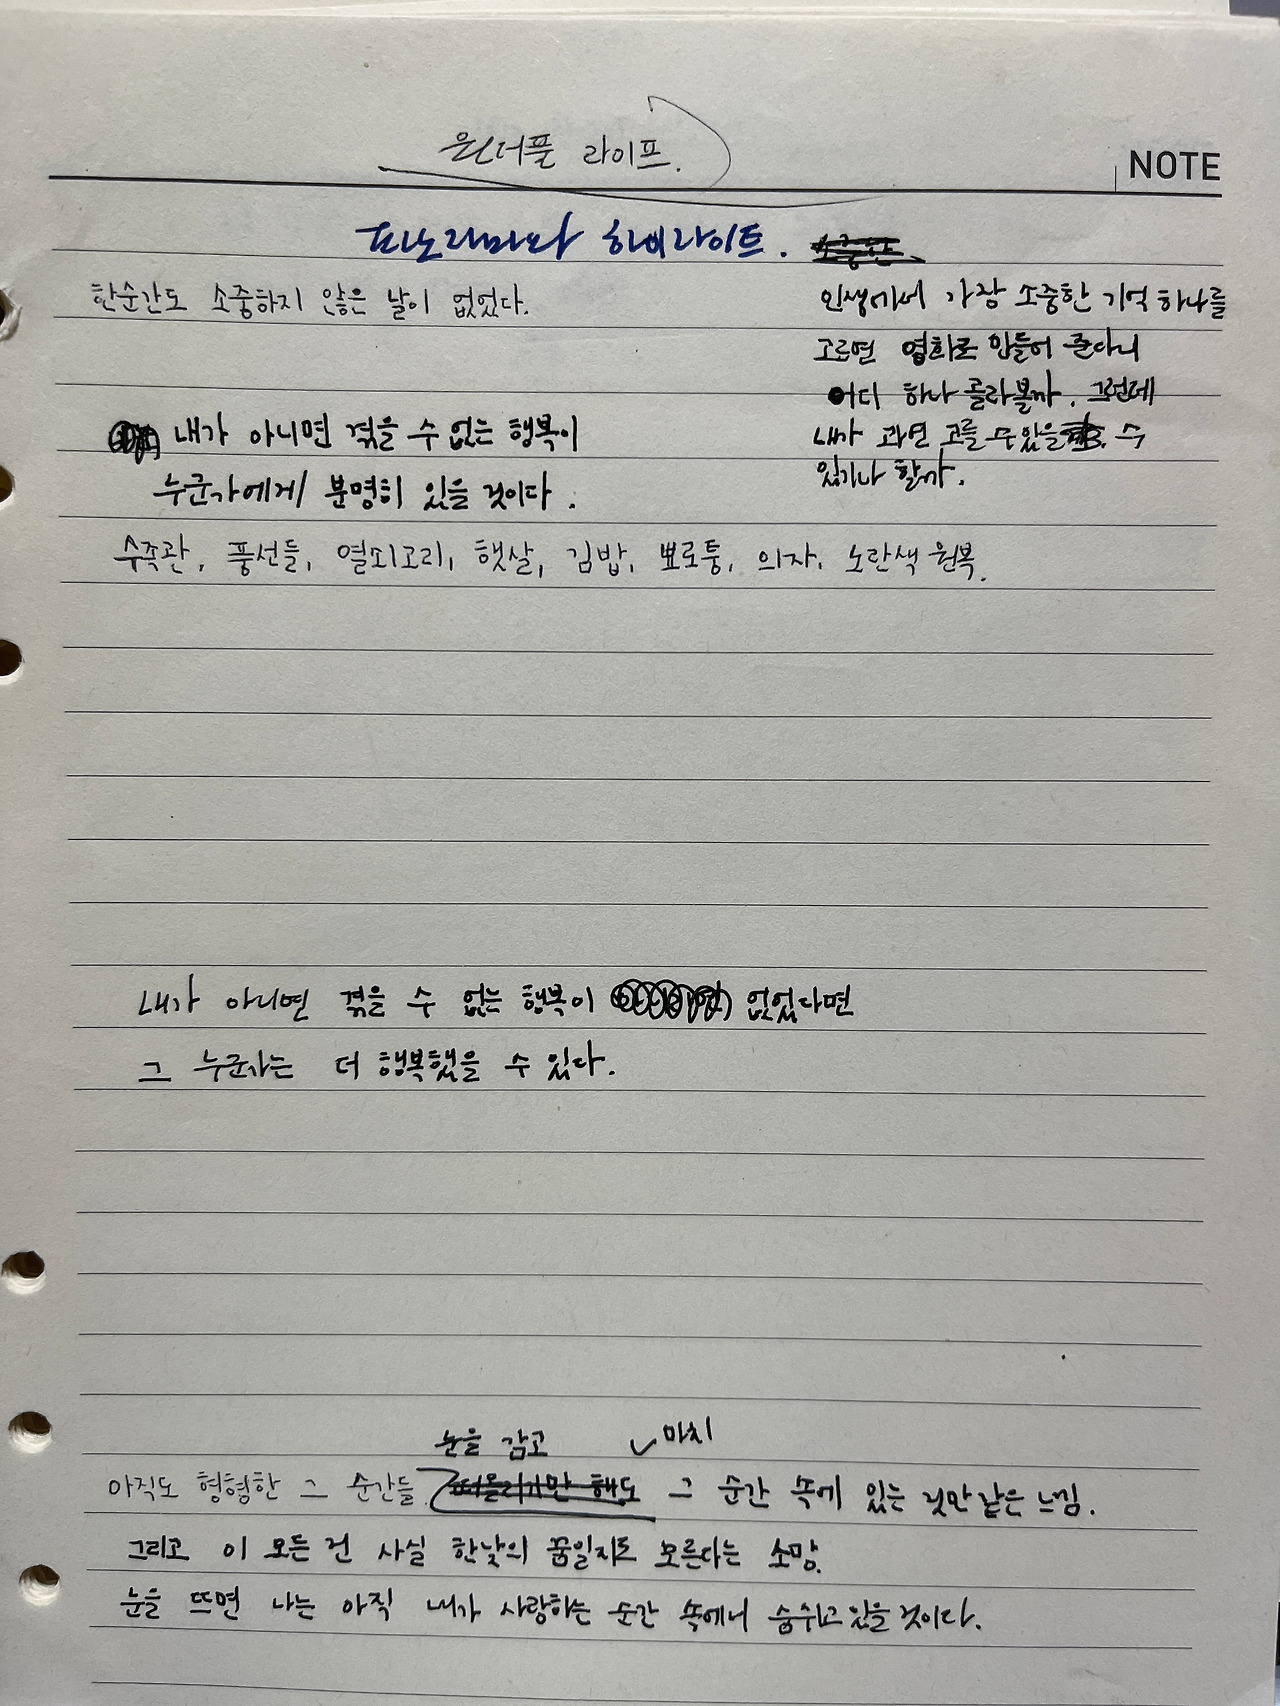 원더풀 라이프.
NOTE
파노라마와 하이라이트.
한순간도 소중하지 않은 날이 없었다.
인생에서 가장 소중한 기억 하나를
고르면 영화로 만들어 준다니
어디 하나 골라볼까. 그런데
내가 과연 고를 수 있을 수
있기나 할까.
내가 아니면 겪을 수 없는 행복이
누군가에게 분명히 있을 것이다.
수족관, 풍선들, 열쇠고리, 햇살, 김밥, 뽀로퉁, 의자, 노란색 원복.
내가 아니면 겪을 수 없는 행복이 없었다면
그 누군가는 더 행복했을 수 있다.
눈을 감고 마치
아직도 형형한 그 순간들 떠올리기만 해도 그 순간 속에 있는 것만 같은 느낌.
그리고 이 모든 건 사실 한낮의 꿈일지도 모른다는 소망.
눈을 뜨면 나는 아직 내가 사랑하는 순간 속에서 숨쉬고 있을 것이다.